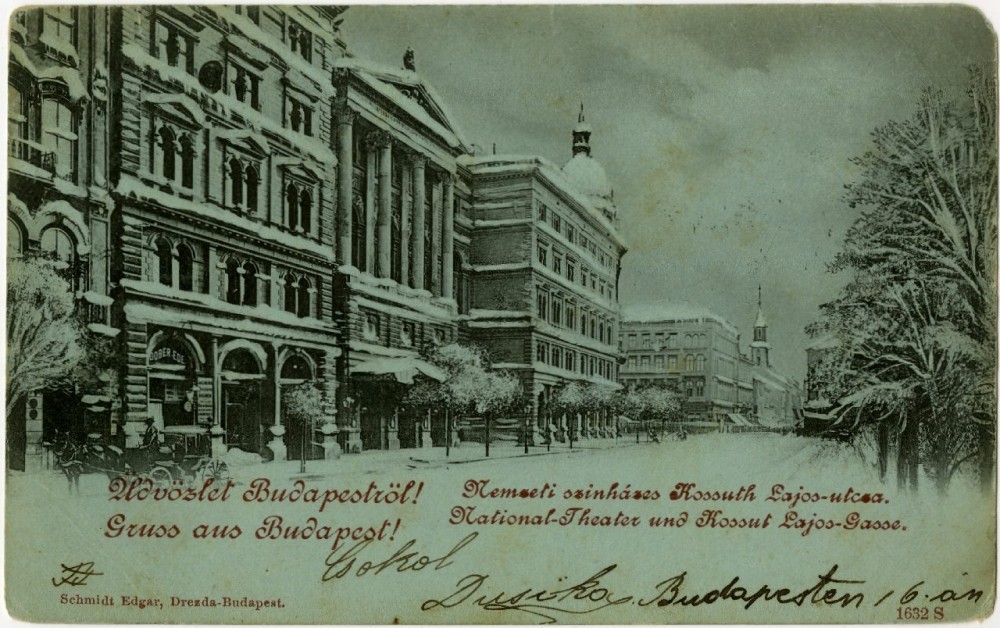 DOBER EDE
Üdvözlet Budapestről!
Gruss aus Budapest!
Nemzeti szinházes Kossuth Lajos-utcza.
National-Theater und Kossut Lajos-Gasse.
Csokol
Dusika Budapesten 16.-án
Schmidt Edgar, Drezda-Budapest.
1632 S